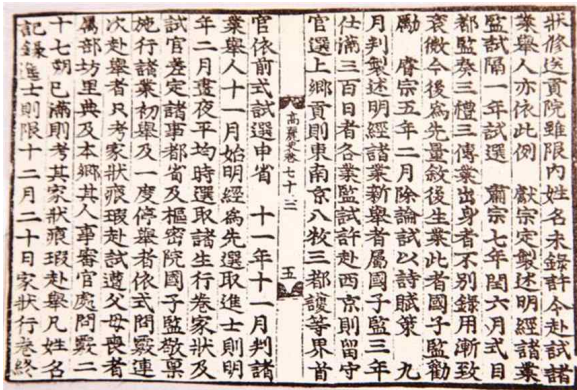 狀修送貢院雖限內姓名未錄許令赴試諸
業擧人亦依此例　獻宗定製述明經諸業
監試隔一年試選　肅宗七年閏六月式目
都監奏三禮三傳業出身者不別錄用漸致
衰微今後爲先量敘後生業此者國子監勸
勵　睿宗五年二月除論試以詩賦策　九
月判製述明經諸業新擧者屬國子監三年
仕滿三百日者各業監試許赴西京則留守
官選上鄕貢則東南京八牧三都護等界首
高麗史卷七十三　五
官依前式試選申省　十一年十一月判諸
業擧人十一月始明經爲先選取進士則明
年二月晝夜平均時選取諸生行卷家狀及
試官差定諸事都省及樞密院國子監敬稟
施行諸業初擧及一度停擧者依式問覈連
次赴擧者只考家狀痕瑕赴試遵父母喪者
屬部坊里典及本鄕其人事審官處問覈二
十七朔已滿則考其家狀痕瑕赴擧凡姓名
記錄進士則限十二月二十日家狀行卷終